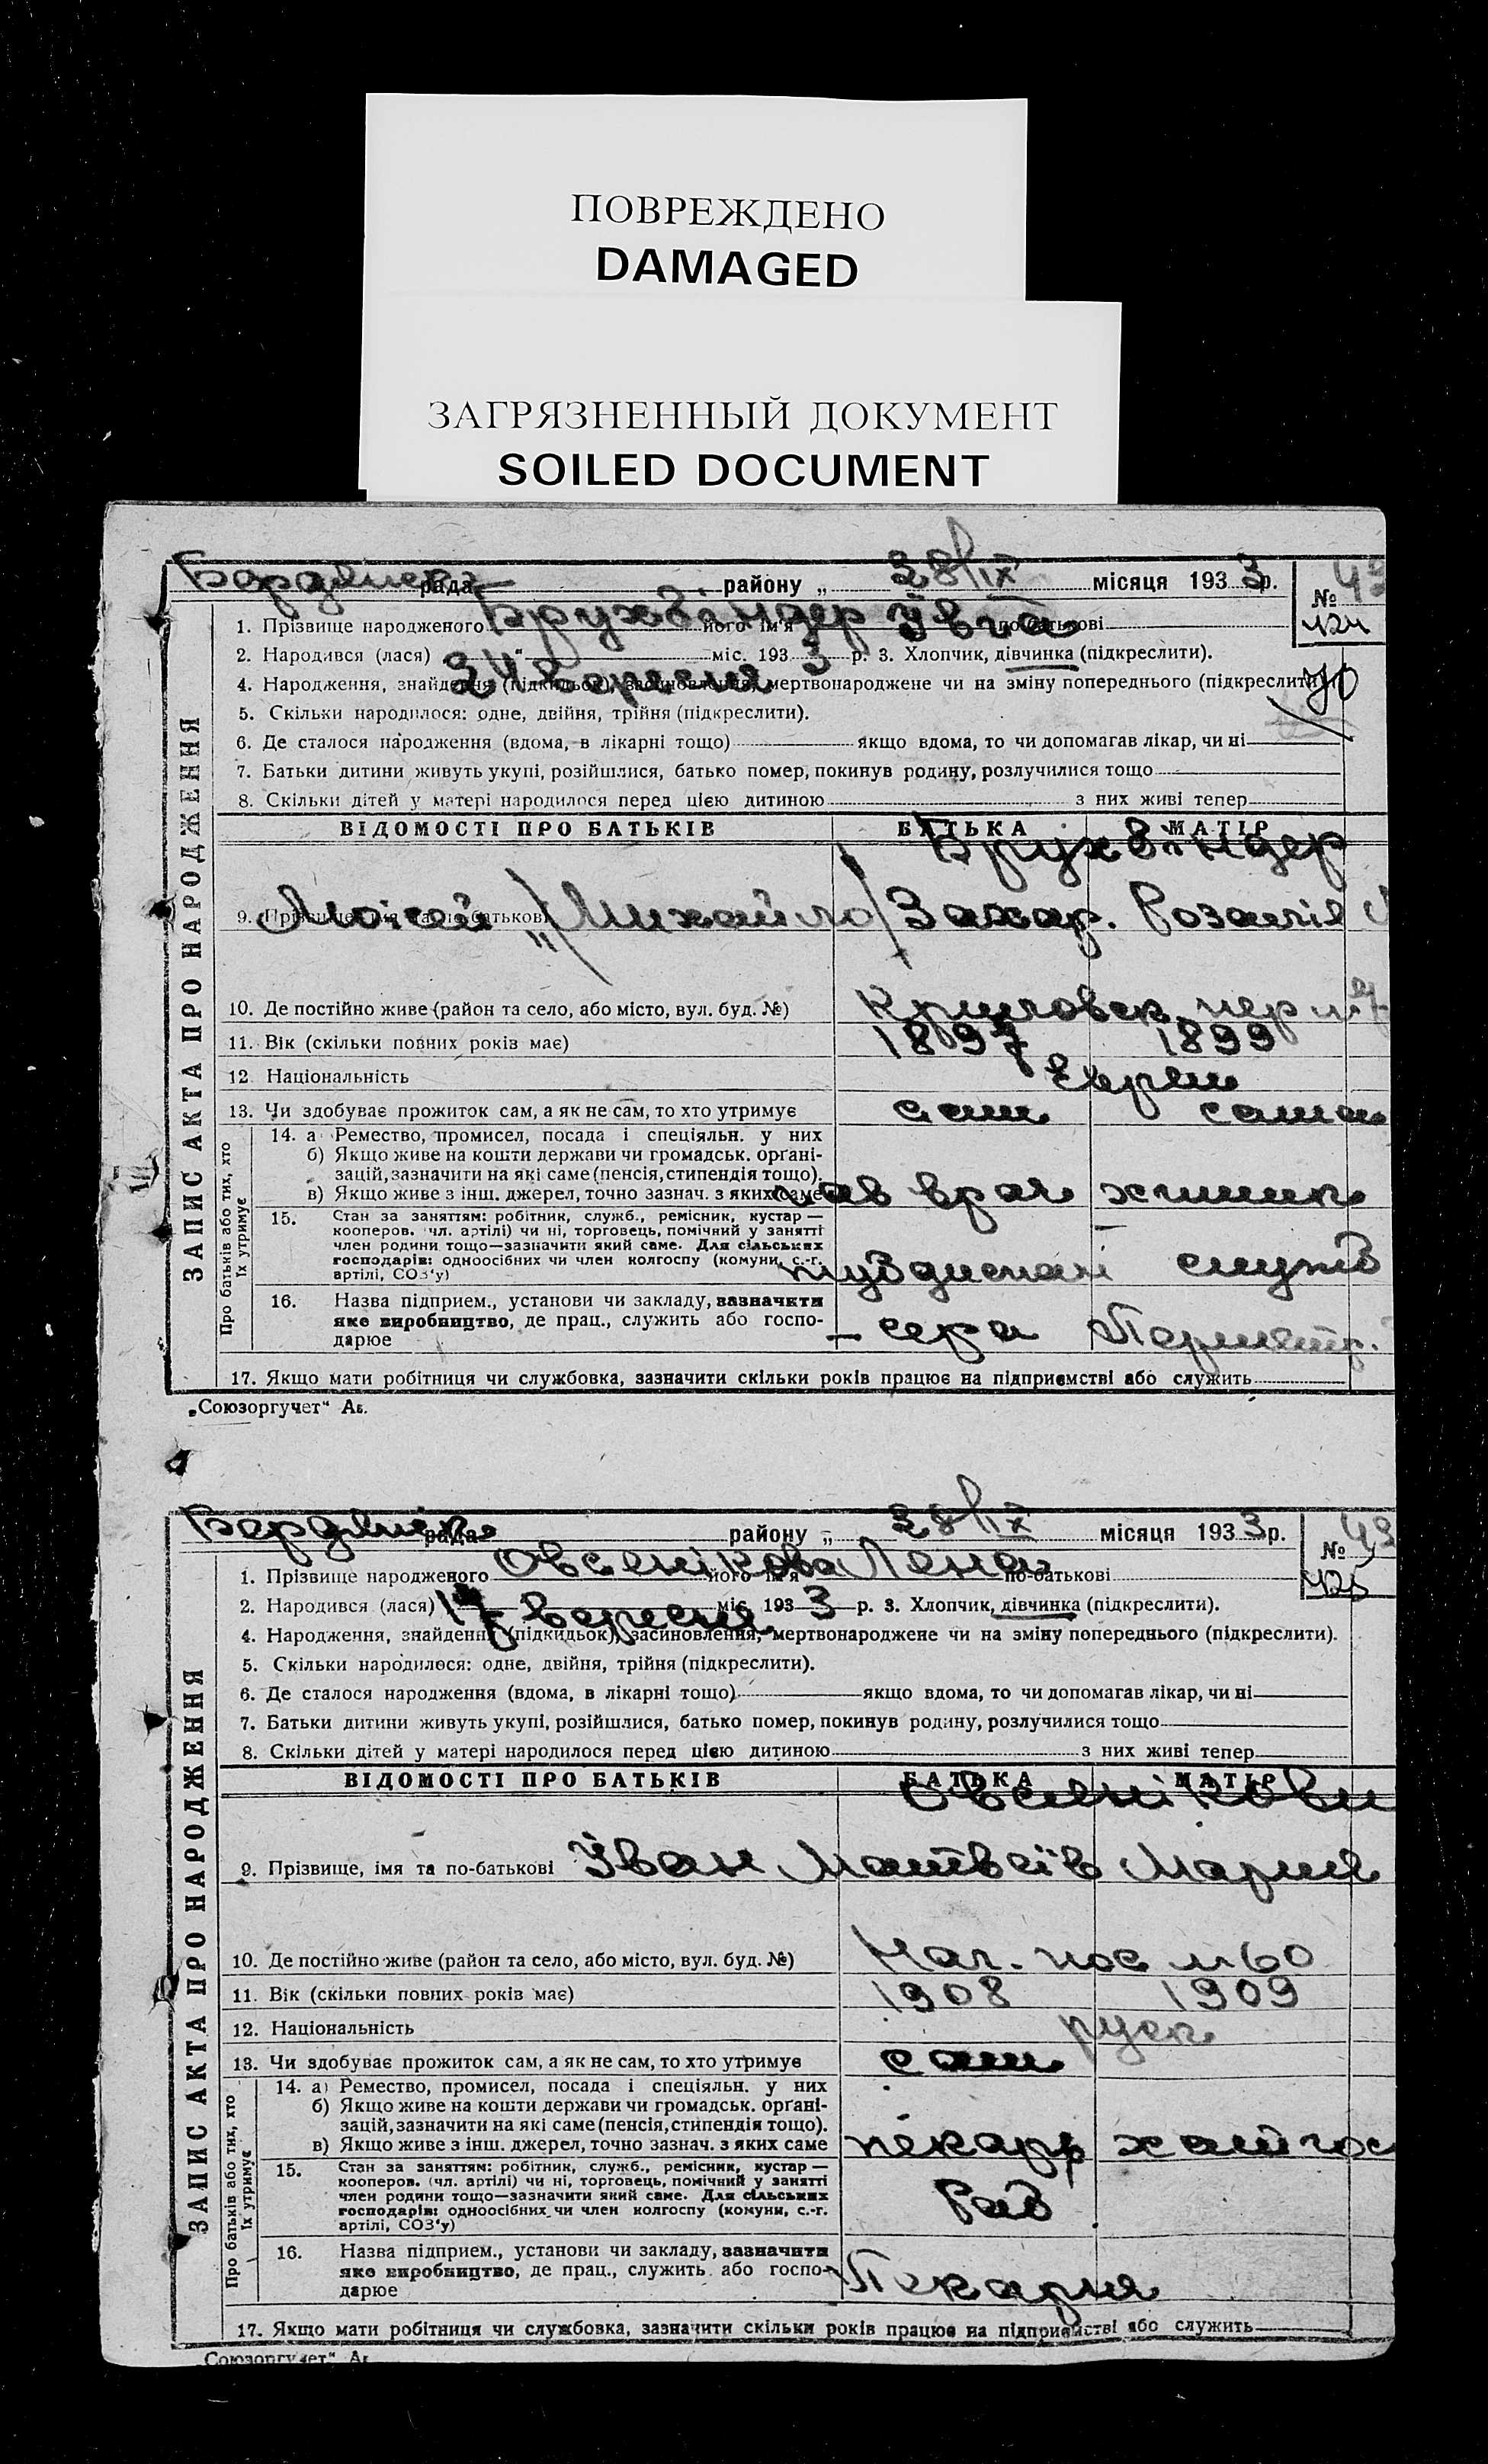 ПОВРЕЖДЕНО
DAMAGED
ЗАГРЯЗНЕННЫЙ ДОКУМЕНТ
SOILED DOCUMENT
рада району „ 28/IX місяця 1933 р.
№
424
ЗАПИС АКТА ПРО НАРОДЖЕННЯ
1. Прізвище народженого його ім'я по-батькові
2. Народився (лася) 24 вересня міс. 1933 р. 3. Хлопчик, дівчинка (підкреслити).
4. Народження, знайдення (підкидьок), засиновлення, мертвонароджене чи на зміну попереднього (підкреслити).
5. Скільки народилося: одне, двійня, трійня (підкреслити).
6. Де сталося народження (вдома, в лікарні тощо) якщо вдома, то чи допомагав лікар, чи ні
7. Батьки дитини живуть укупі, розійшлися, батько помер, покинув родину, розлучилися тощо
8. Скільки дітей у матері народилося перед цією дитиною з них живі тепер
ВІДОМОСТІ ПРО БАТЬКІВ БАТЬКА МАТІР
9. Прізвище, імя та по-батькові Мойсей /Михайло/ Захар. Розалія
10. Де постійно живе (район та село, або місто, вул. буд. №)
11. Вік (скільки повних років має) 1897 1899
12. Національність Євреи
13. Чи здобуває прожиток сам, а як не сам, то хто утримує сам сама
Про батьків або тих, хто їх утримує
14. а) Ремество, промисел, посада і спеціяльн. у них
б) Якщо живе на кошти держави чи громадськ. орґані-
зацій, зазначити на які саме (пенсія, стипендія тощо).
в) Якщо живе з інш. джерел, точно зазнач. з яких саме зав врач химик
15. Стан за заняттям: робітник, служб., ремісник, кустар —
кооперов. (чл. артілі) чи ні, торговець, помічний у занятті
член родини тощо—зазначити який саме. Для сільських
господарів: одноосібних чи член колгоспу (комуни, с.-г. тубдиспан служб
артілі, СОЗ'у)
16. Назва підприем., установи чи закладу, зазначити
яке виробництво, де прац., служить або госпо- сера
дарює
17. Якщо мати робітниця чи службовка, зазначити скільки років працює на підприємстві або служить
„Союзоргучет“
Бердянск рада району „ 28/IX місяця 1933 р.
№
425
ЗАПИС АКТА ПРО НАРОДЖЕННЯ
1. Прізвище народженого Овсенікова його ім'я Лена по-батькові
2. Народився (лася) 17 вересня міс. 1933 р. 3. Хлопчик, дівчинка (підкреслити).
4. Народження, знайдення (підкидьок), засиновлення, мертвонароджене чи на зміну попереднього (підкреслити).
5. Скільки народилося: одне, двійня, трійня (підкреслити).
6. Де сталося народження (вдома, в лікарні тощо) якщо вдома, то чи допомагав лікар, чи ні
7. Батьки дитини живуть укупі, розійшлися, батько помер, покинув родину, розлучилися тощо
8. Скільки дітей у матері народилося перед цією дитиною з них живі тепер
ВІДОМОСТІ ПРО БАТЬКІВ БАТЬКА МАТІР
Овсенікови
9. Прізвище, імя та по-батькові Іван Матвеїв Мария
10. Де постійно живе (район та село, або місто, вул. буд. №) пос № 60
11. Вік (скільки повних років має) 1908 1909
12. Національність руск
13. Чи здобуває прожиток сам, а як не сам, то хто утримує сам
Про батьків або тих, хто їх утримує
14. а) Ремество, промисел, посада і спеціяльн. у них
б) Якщо живе на кошти держави чи громадськ. орґані-
зацій, зазначити на які саме (пенсія, стипендія тощо).
в) Якщо живе з інш. джерел, точно зазнач. з яких саме пекарь
15. Стан за заняттям: робітник, служб., ремісник, кустар —
кооперов. (чл. артілі) чи ні, торговець, помічний у занятті
член родини тощо—зазначити який саме. Для сільських
господарів: одноосібних чи член колгоспу (комуни, с.-г. Раб
артілі, СОЗ'у)
16. Назва підприем., установи чи закладу, зазначити
яке виробництво, де прац., служить або госпо- Пекарня
дарює
17. Якщо мати робітниця чи службовка, зазначити скільки років працює на підприємстві або служить
„Союзоргучет“